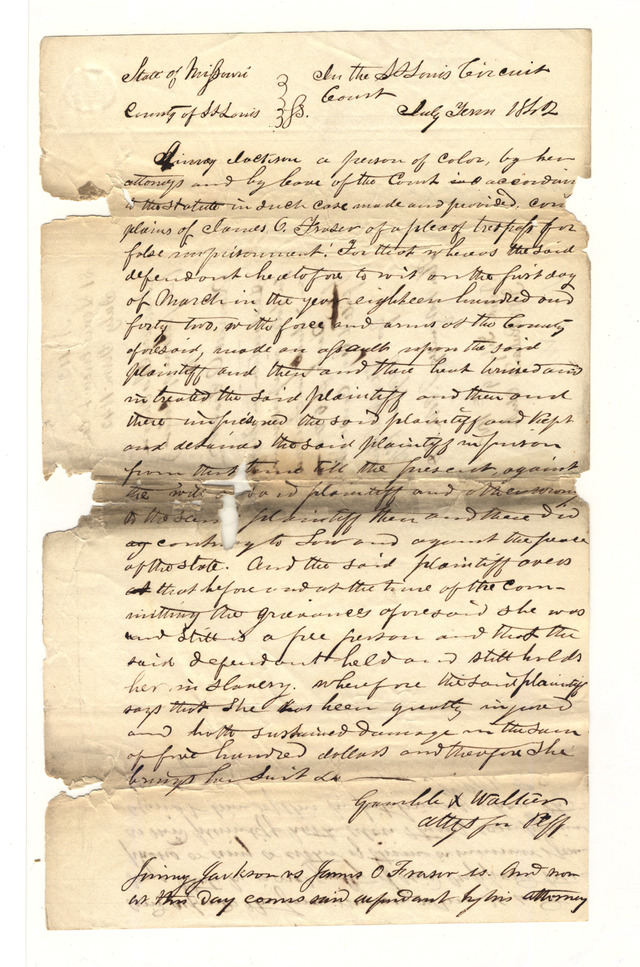 State of Missouri
County of St Louis } ss.
In the St Louis Circuit
Court
July Term 1842
Jinny Jackson a person of color, by her
attorneys and by leave of the Court and accordin
to the statute in such case made and provided, com
plains of James O. Fraser of a plea of trespass for
false imprisonment. For that whereas the said
defendant heretofore to wit on the first day
of March in the year eighteen hundred and
forty two, with force and arms at the County
aforesaid, made an assault upon the said
plaintiff and then and there beat bruised and
ill treated the said plaintiff and then and
there imprisoned the said plaintiff and kept
and detained the said plaintiff in prison
from that time till the present, against
the will said plaintiff and other wrongs
to the said plaintiff then and there did
contrary to Law and against the peace
of the state. And the said plaintiff avers
that before and at the time of the com-
mitting the grievances aforesaid she was
and still is a free person and that the
said defendant held and still holds
her in slavery. Wherefore the said plaintiff
says that she has been greatly injured
and hath sustained damage in the sum
of five hundred dollars and therefore she
brings her suit &c
Gamble & Walter
attys for Plff
Jinny Jackson vs James O Fraser ss. And now
at this day comes said defendant by his attorney